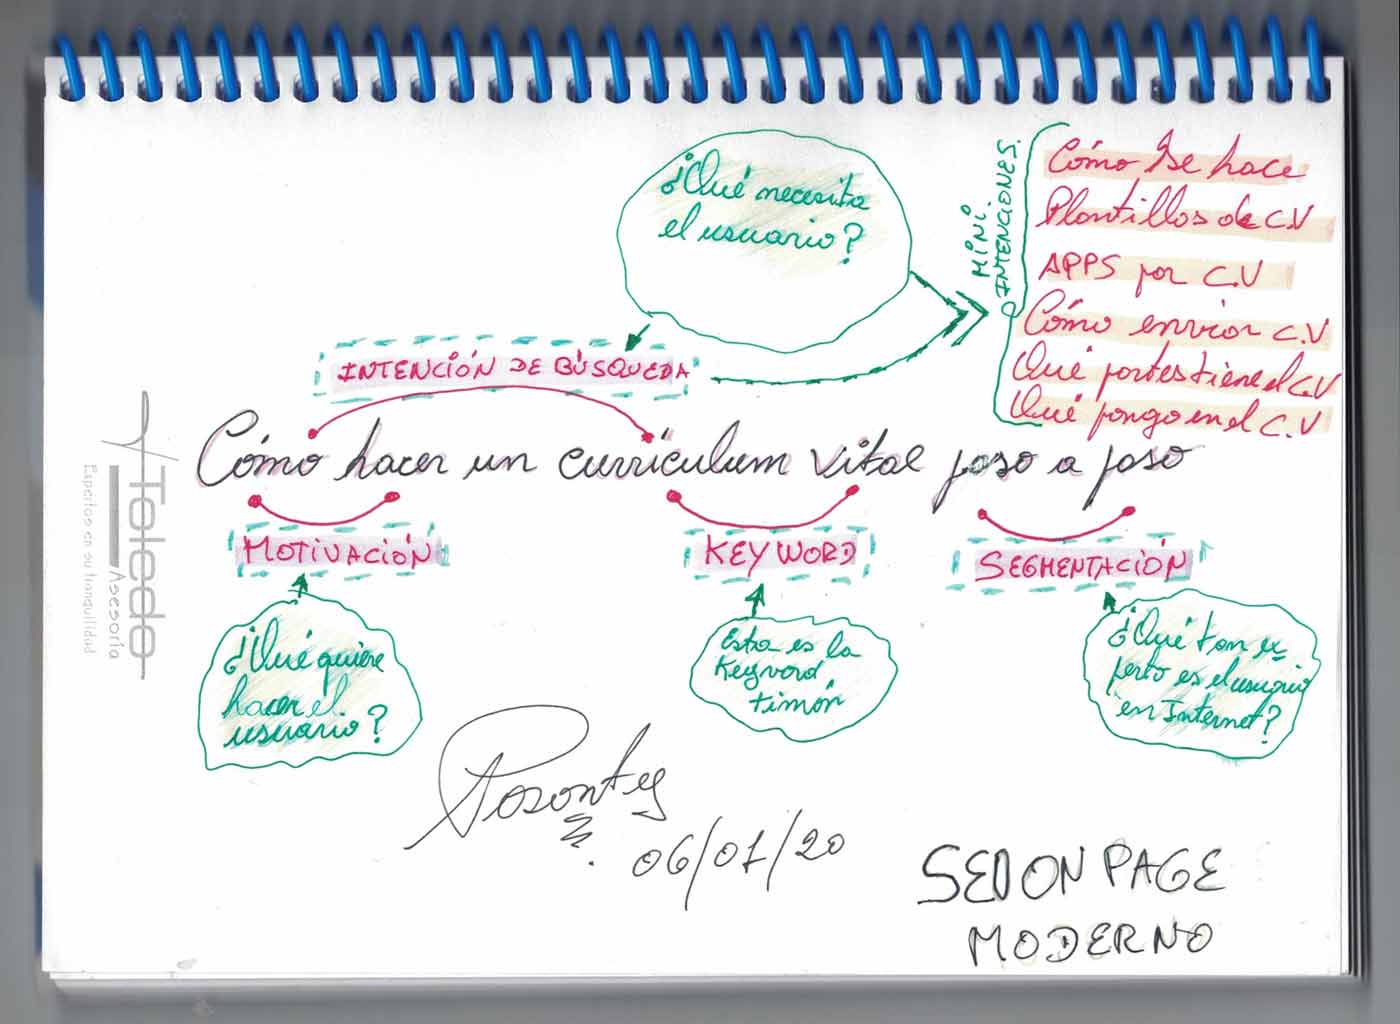 ¿Qué necesita
el usuario?
MINI
INTENCIONES.
Cómo se hace
Plantillas de C.V
APPS por C.V
Cómo enviar C.V
Qué partes tiene el C.V
Qué pongo en el C.V
INTENCIÓN DE BÚSQUEDA
Cómo hacer un currículum vital paso a paso
MOTIVACIÓN
KEYWORD
SEGMENTACIÓN
¿Qué quiere
hacer el
usuario?
Esta es la
Keyword
timón
¿Qué tan ex
perto es el usuario
en Internet?
Toledo
Asesoría
Expertos en su tranquilidad
06/01/20
SEO ON PAGE
MODERNO